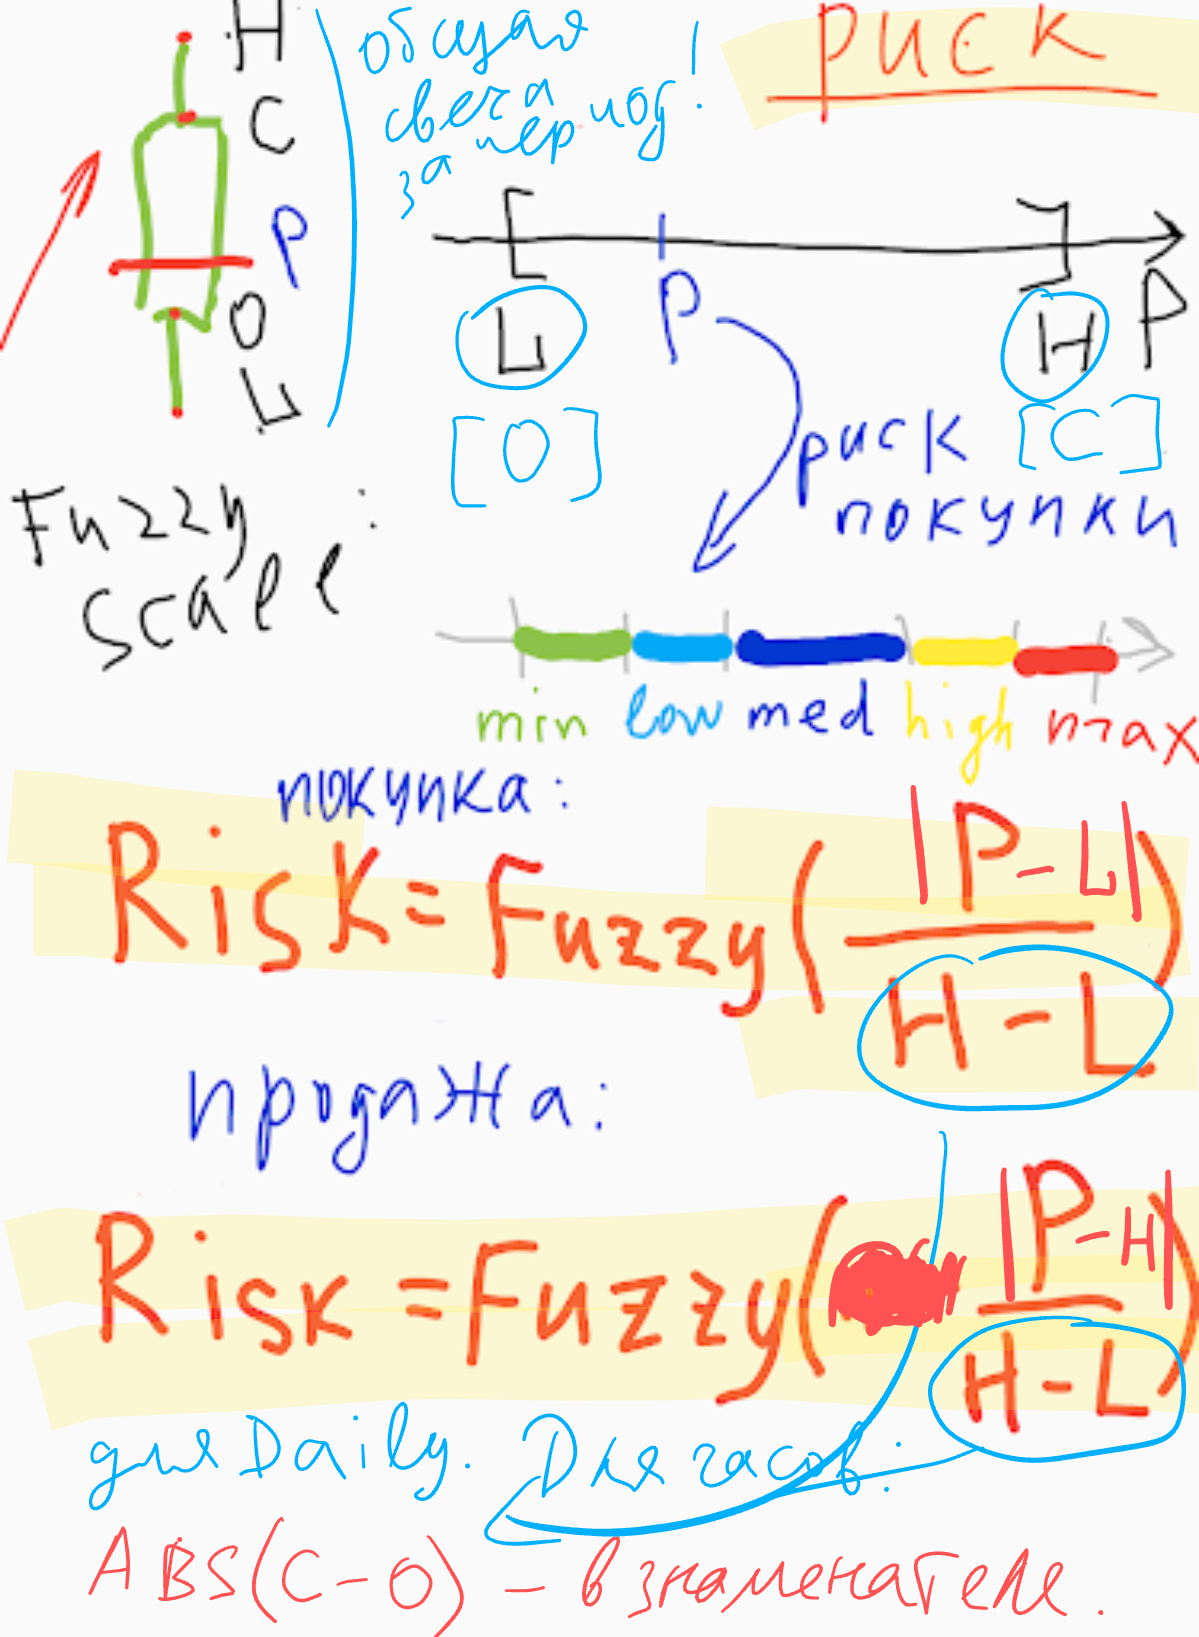 H
C
P
O
L
общая
свеча
за период!
риск
L P H P
[O] [C]
риск
покупки
Fuzzy
scale:
min low med high max
покупка:
Risk = Fuzzy(|P-L| / H-L)
продажа:
Risk = Fuzzy(|P-H| / H-L)
для Daily. Для часов:
ABS(C-O) - в знаменателе.